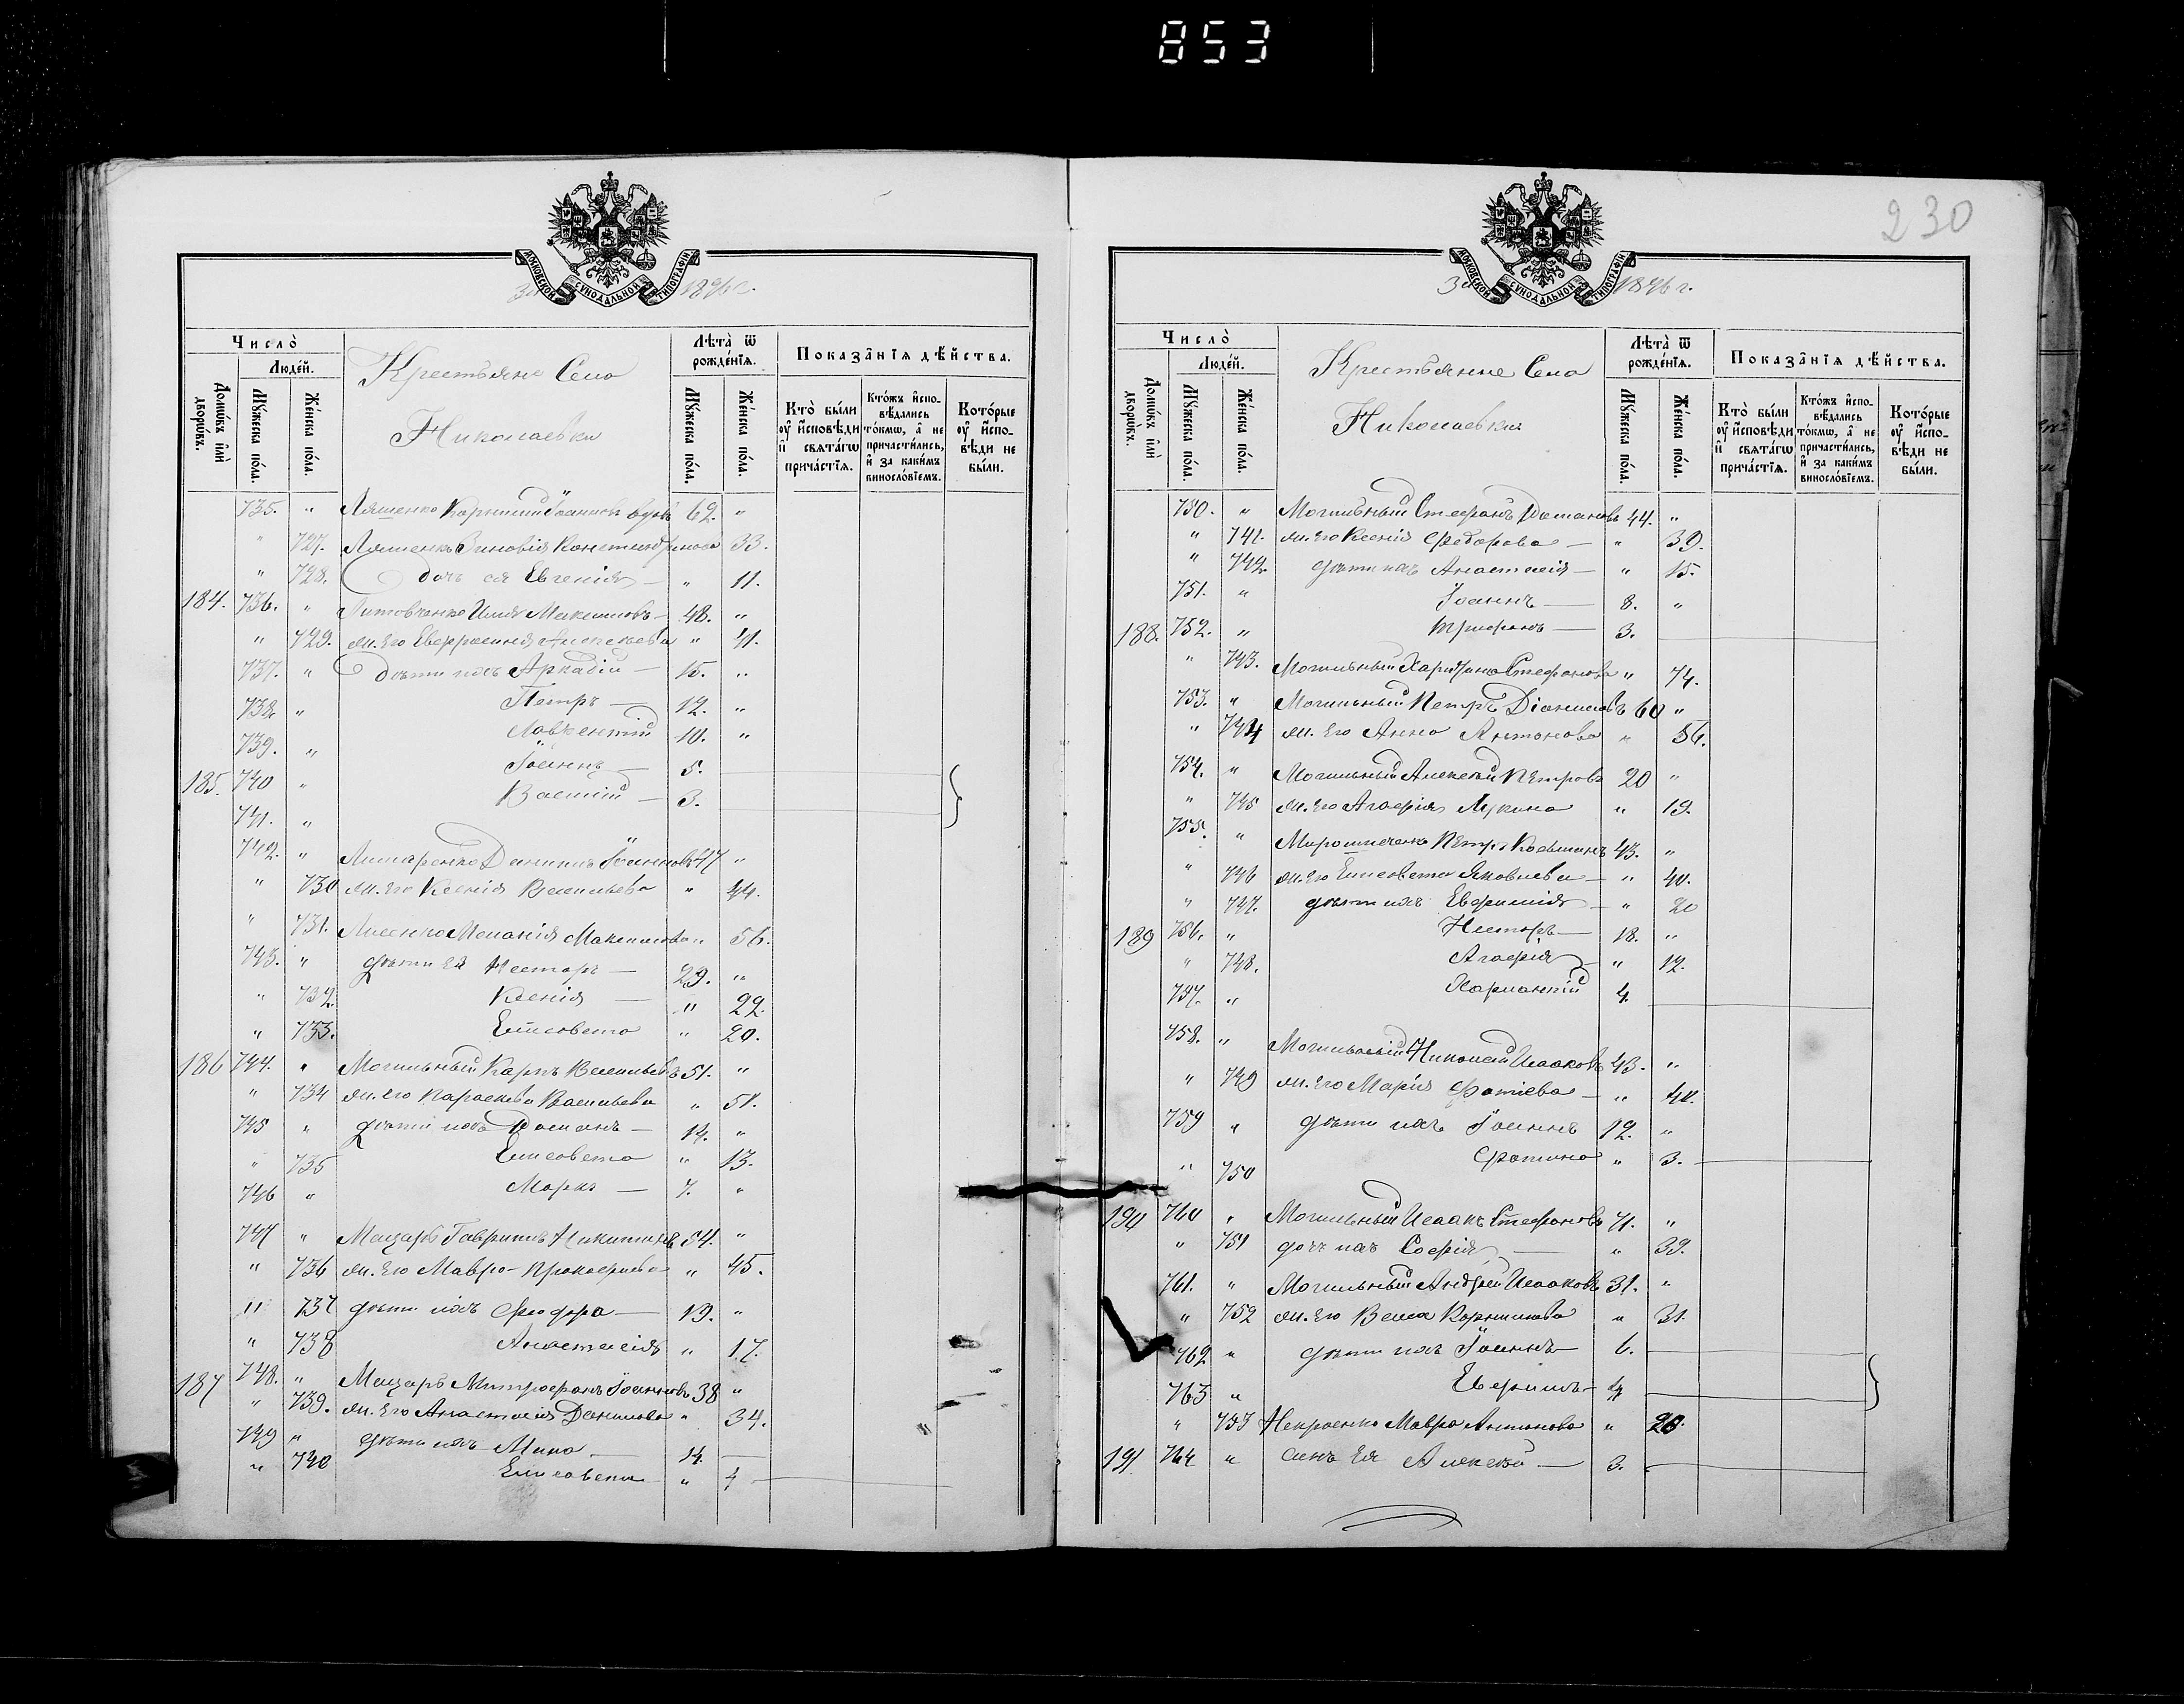 853
МОСКОВСКОЙ СѴНОДАЛЬНОЙ ТИПОГРАФІИ
За 1896 г.
Число̀
Домѡ́въ и҆лѝ дворѡ́въ.
Люде́й.
Мꙋ́жеска по́ла.
Же́нска по́ла.
Крестьяне Села
Николаевки
Лѣ́та ѿ рожде́нїѧ.
Мꙋ́жеска по́ла.
Же́нска по́ла.
Показа̑нїѧ дѣ́йства.
Кто̀ бы́ли оу҆ и҆́сповѣди и҆ свѧта́гѡ прича́стїѧ.
Кто́жъ и҆спо-вѣ́дались то́кмѡ, а҆ не причасти́лись, и҆ за каки́мъ винослові́емъ.
Кото́рые оу҆ и҆́спо-вѣди не бы́ли.
735. " Ляшенко Корнилій Іоанновъ вдовъ 62. "
" 727. Ляшенко Зиновія 33.
" 728. дочь ея Евгенія — " 11.
184. 736. " Литовченко Илія Максимовъ — 48. "
" 729. ж. его Евфросинія Алексѣева " 41.
737. " дѣти ихъ Аркадій — 15. "
738. " Петръ — 12. "
739. " Лаврентій 10. "
185. 740 " Іоаннъ — 5.
741. " Василій — 3.
742. " Даніилъ Іоанновъ 47 "
" 730 ж. его Ксенія Васильева " 44.
" 731. Лисенко Меланія Максимова " 56.
743. " дѣти ея Несторъ — 29. "
" 732. Ксенія — " 22.
" 733. Елисавета " 20.
186 744. " Могильный Карпъ Васильевъ 51. "
" 734 ж. его Параскева Васильева " 51.
745 " дѣти ихъ Романъ — 14. "
" 735 Елисавета " 13.
746 " Маркъ — 7. "
747 " Мащаръ Гавріилъ Никитинъ 54. "
" 736 ж. его Мавра Прокофіева " 45.
" 737 дѣти ихъ Феодора — 19. "
" 738 Анастасія " 17.
187 748. " Мащаръ Митрофанъ Іоанновъ 38 "
" 739. ж. его Анастасія Данилова " 34.
749 " дѣти ихъ Мина — 14. —
" 740 Елисавета " 4 —
230
МОСКОВСКОЙ СѴНОДАЛЬНОЙ ТИПОГРАФІИ
За 1896 г.
Число̀
Домѡ́въ и҆лѝ дворѡ́въ.
Люде́й.
Мꙋ́жеска по́ла.
Же́нска по́ла.
Крестьяне Села
Николаевки
Лѣ́та ѿ рожде́нїѧ.
Мꙋ́жеска по́ла.
Же́нска по́ла.
Показа̑нїѧ дѣ́йства.
Кто̀ бы́ли оу҆ и҆́сповѣди и҆ свѧта́гѡ прича́стїѧ.
Кто́жъ и҆спо-вѣ́дались то́кмѡ, а҆ не причасти́лись, и҆ за каки́мъ винослові́емъ.
Кото́рые оу҆ и҆́спо-вѣди не бы́ли.
730. " Могильный Стефанъ Романовъ 44. "
" 741. ж. его Ксенія Федорова — " 39.
" 742. дѣти ихъ Анастасія — " 15.
751. " Іоаннъ — 8. "
188. 752. " Трифонъ — 3.
" 743. Могильный Харитина Стефанова " 74.
753. " Могильный Петръ Діонисіевъ 60 "
" 744 ж. его Анна Антонова " 56.
754. " Могильный Алексѣй Петровъ 20 "
" 745 ж. его Агафія Лукина " 19.
755. " Мирошничен. Петръ Косьминъ 43. "
" 746 ж. его Елисавета Яковлева — " 40.
" 747. дѣти ихъ Евфимія — " 20
189 756. " Несторъ — 18. "
" 748. Агафія " 12.
757. " Харлампій 4.
758. " Могильный Николай Исааковъ 43. "
" 749 ж. его Марія Фотіева — " 41.
759 " дѣти ихъ Іоаннъ 12. "
" 750 Фотина " 3. —
190 760 " Могильный Исаакъ Стефановъ 71. "
" 751 дочь ихъ Софія — " 39.
761. " Могильный Андрей Исааковъ 31. "
" 752 ж. его Васса Корнилова " 31.
762 " дѣти ихъ Іоаннъ — 6.
763 " 4
" 753 Мавра Антонова " 26.
191 764 " сынъ ея Алексѣй — 3.